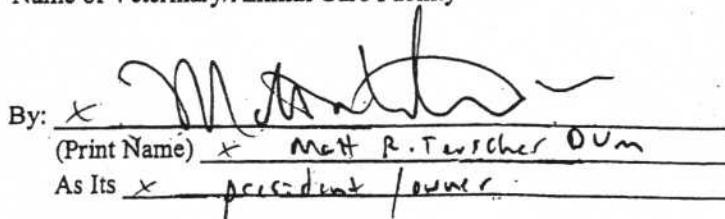 Name of Veterinary/Animal Care Facility
By: x
(Print Name) x Matt R. Teuscher DVM
As Its x president / owner